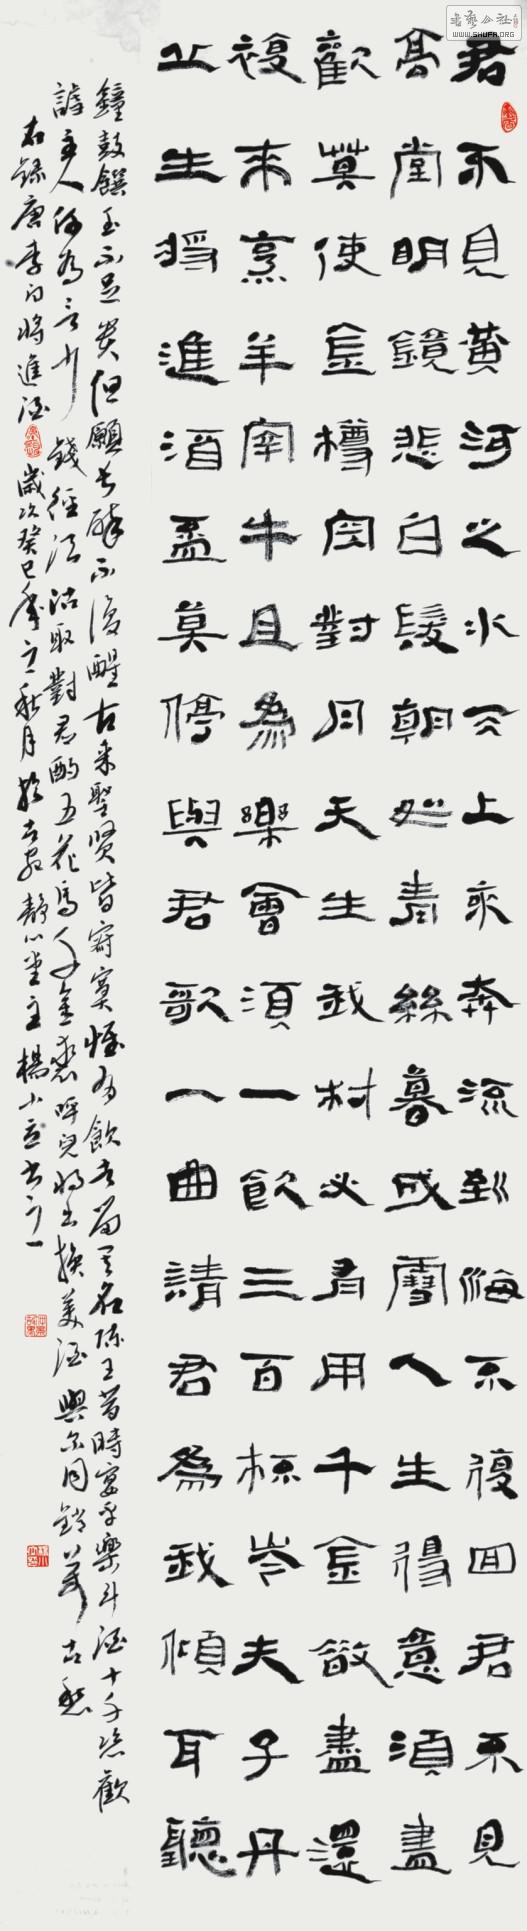 書藝公社
WWW.SHUFA.ORG
君不見黃河之水天上來奔流到海不復回君不見
高堂明鏡悲白髮朝如青絲暮成雪人生得意須盡
歡莫使金樽空對月天生我材必有用千金散盡還
復來烹羊宰牛且為樂會須一飲三百杯岑夫子丹
丘生將進酒盃莫停與君歌一曲請君為我傾耳聽
鐘鼓饌玉不足貴但願長醉不復醒古來聖賢皆寂寞惟有飲者留其名陳王昔時宴平樂斗酒十千恣歡
謔主人何為言少錢徑須沽取對君酌五花馬千金裘呼兒將出換美酒與爾同銷萬古愁
右錄唐李白將進酒歲次癸巳年之秋月於古靜心堂主楊小書之